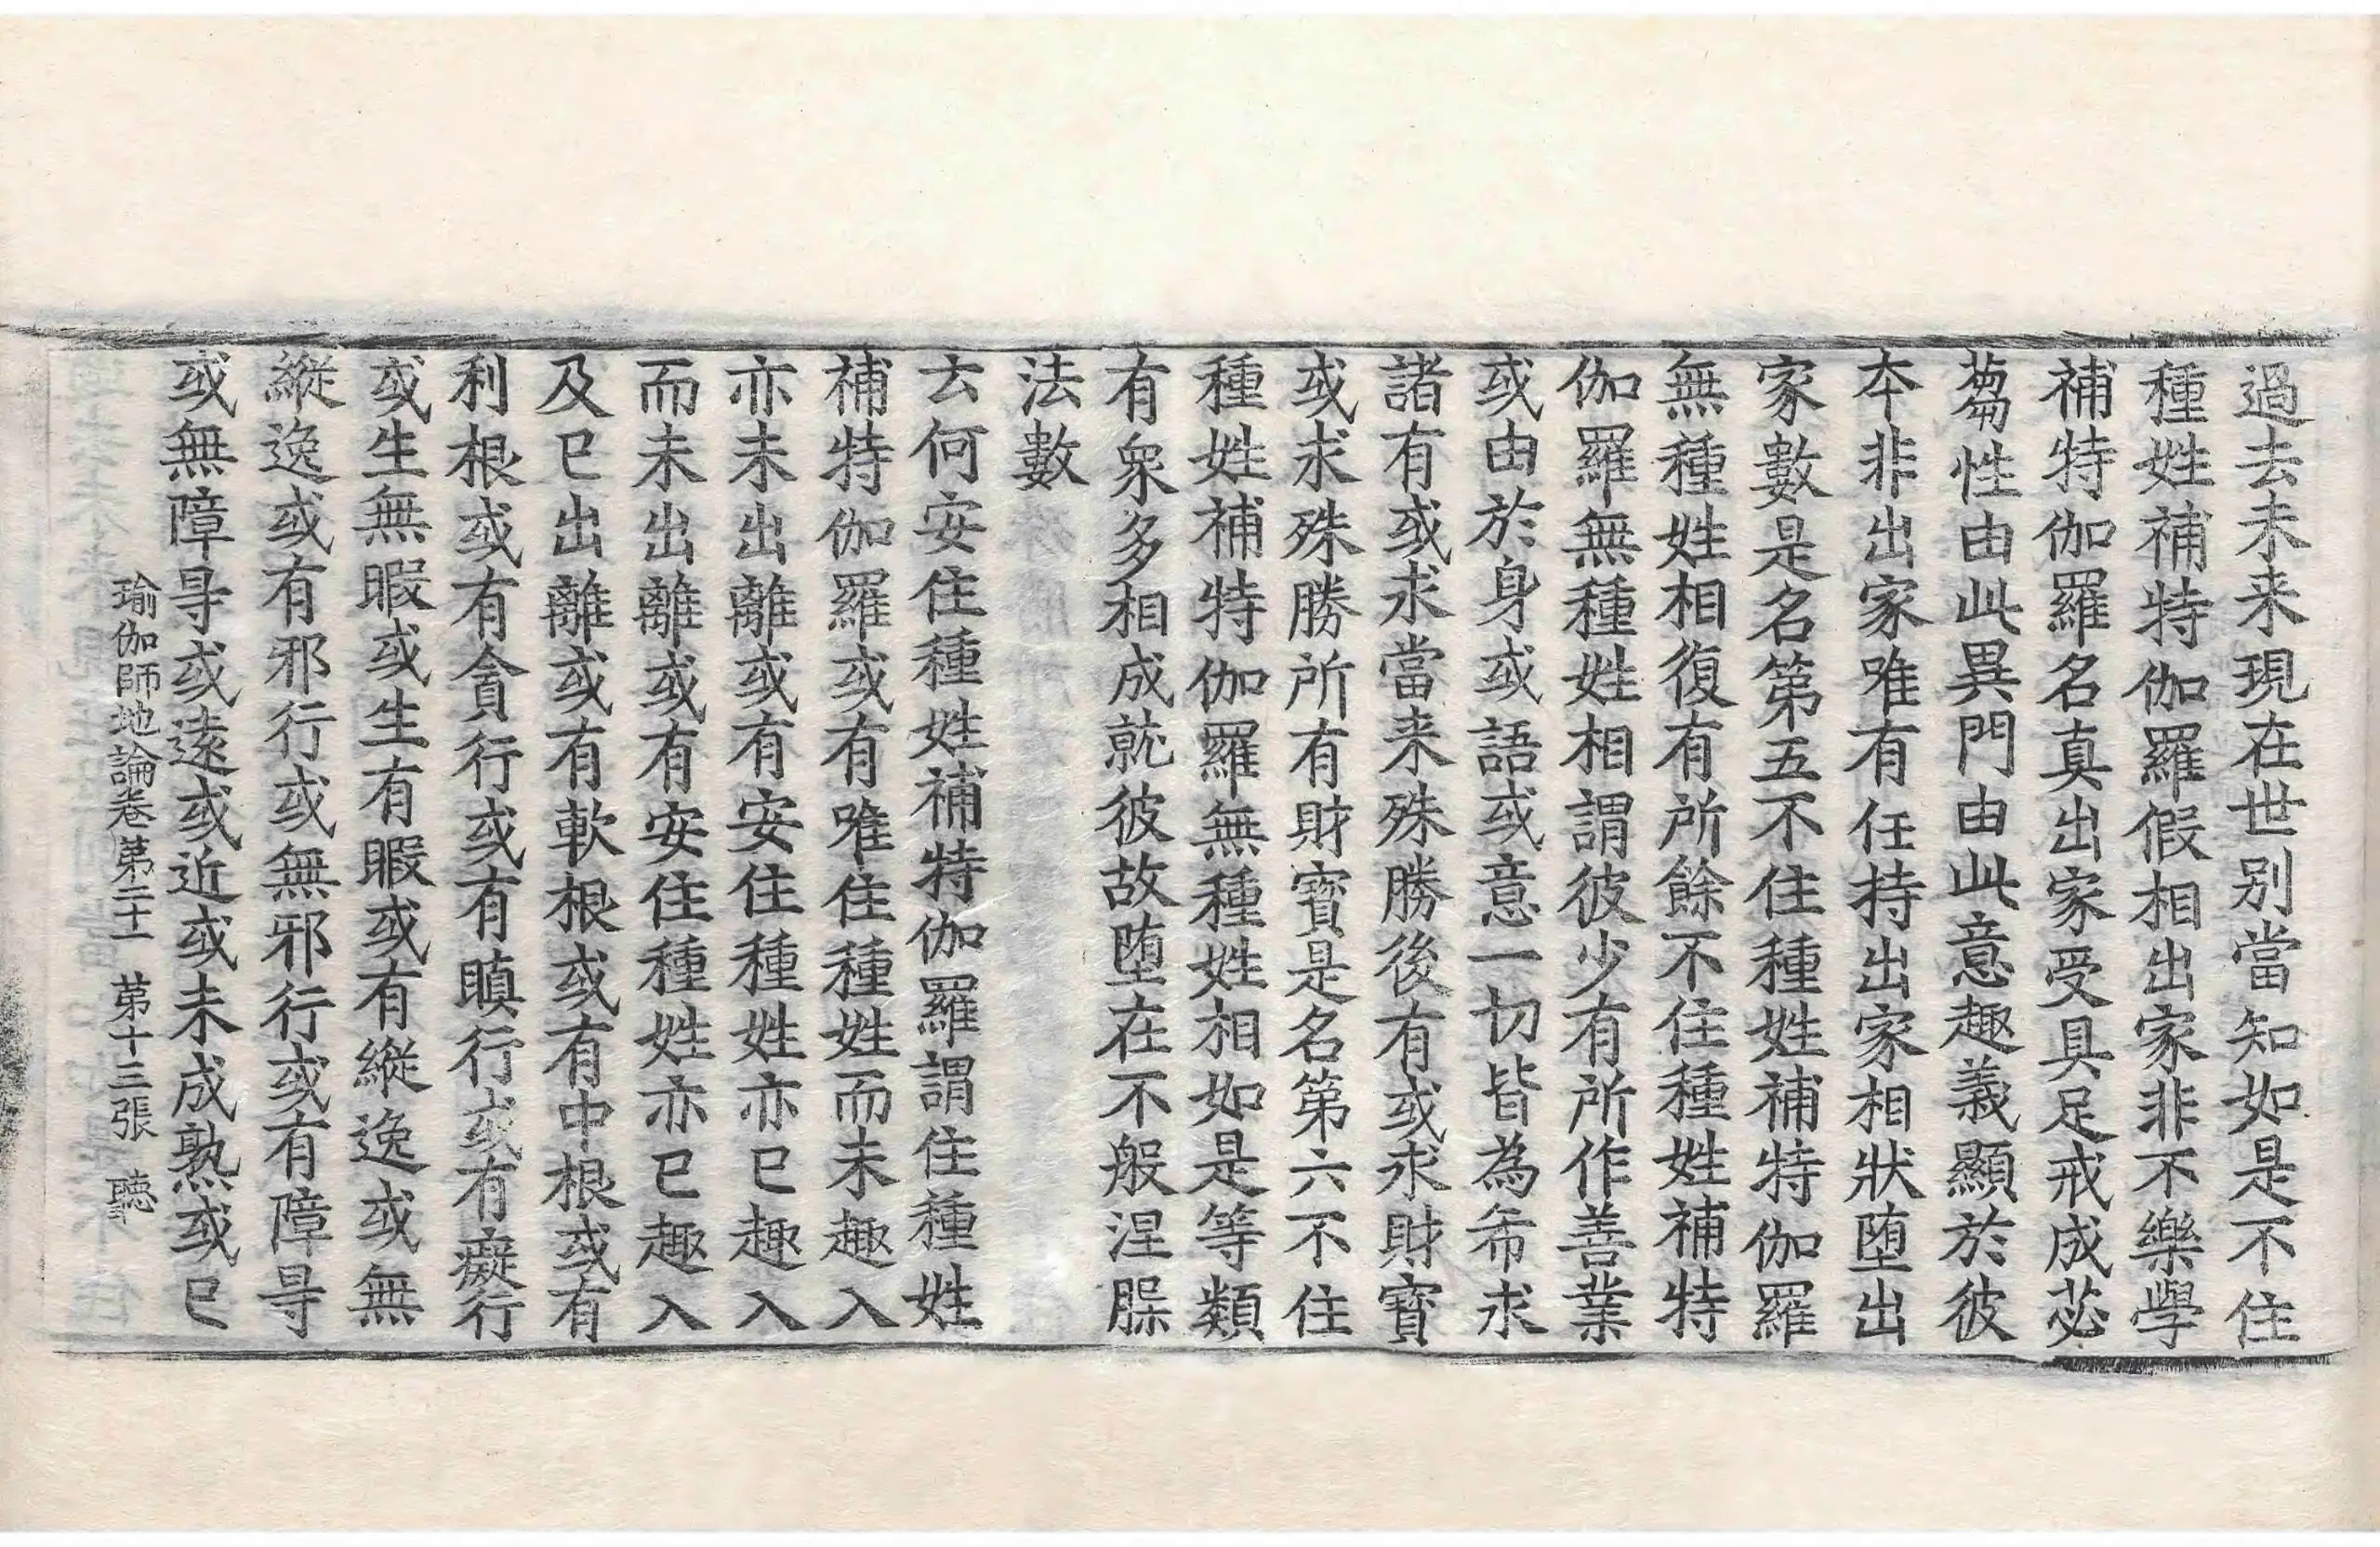 過去未来現在世别當知如是不住
種姓補特伽羅假相出家非不樂學
補特伽羅名真出家受具足戒成苾
蒭性由此異門由此意趣義顯於彼
夲非出家唯有任持出家相狀堕出
家數是名第五不住種姓補特伽羅
無種姓相復有所餘不住種姓補特
伽羅無種姓相謂彼少有所作善業
或由於身或語或意一切皆為希求
諸有或求當来殊勝後有或求財寶
或求殊勝所有財寶是名第六不住
種姓補特伽羅無種姓相如是等類
有衆多相成就彼故堕在不般涅脲
法數
云何安住種姓補特伽羅謂住種姓
補特伽羅或有唯住種姓而未趣入
亦未出離或有安住種姓亦已趣入
而未出離或有安住種姓亦已趣入
及已出離或有軟根或有中根或有
利根或有貪行或有瞋行或有癡行
或生無暇或生有暇或有縱逸或無
縱逸或有邪行或無邪行或有障㝵
或無障㝵或遠或近或未成熟或已
瑜伽師地論卷第二十一 第十三張 聽